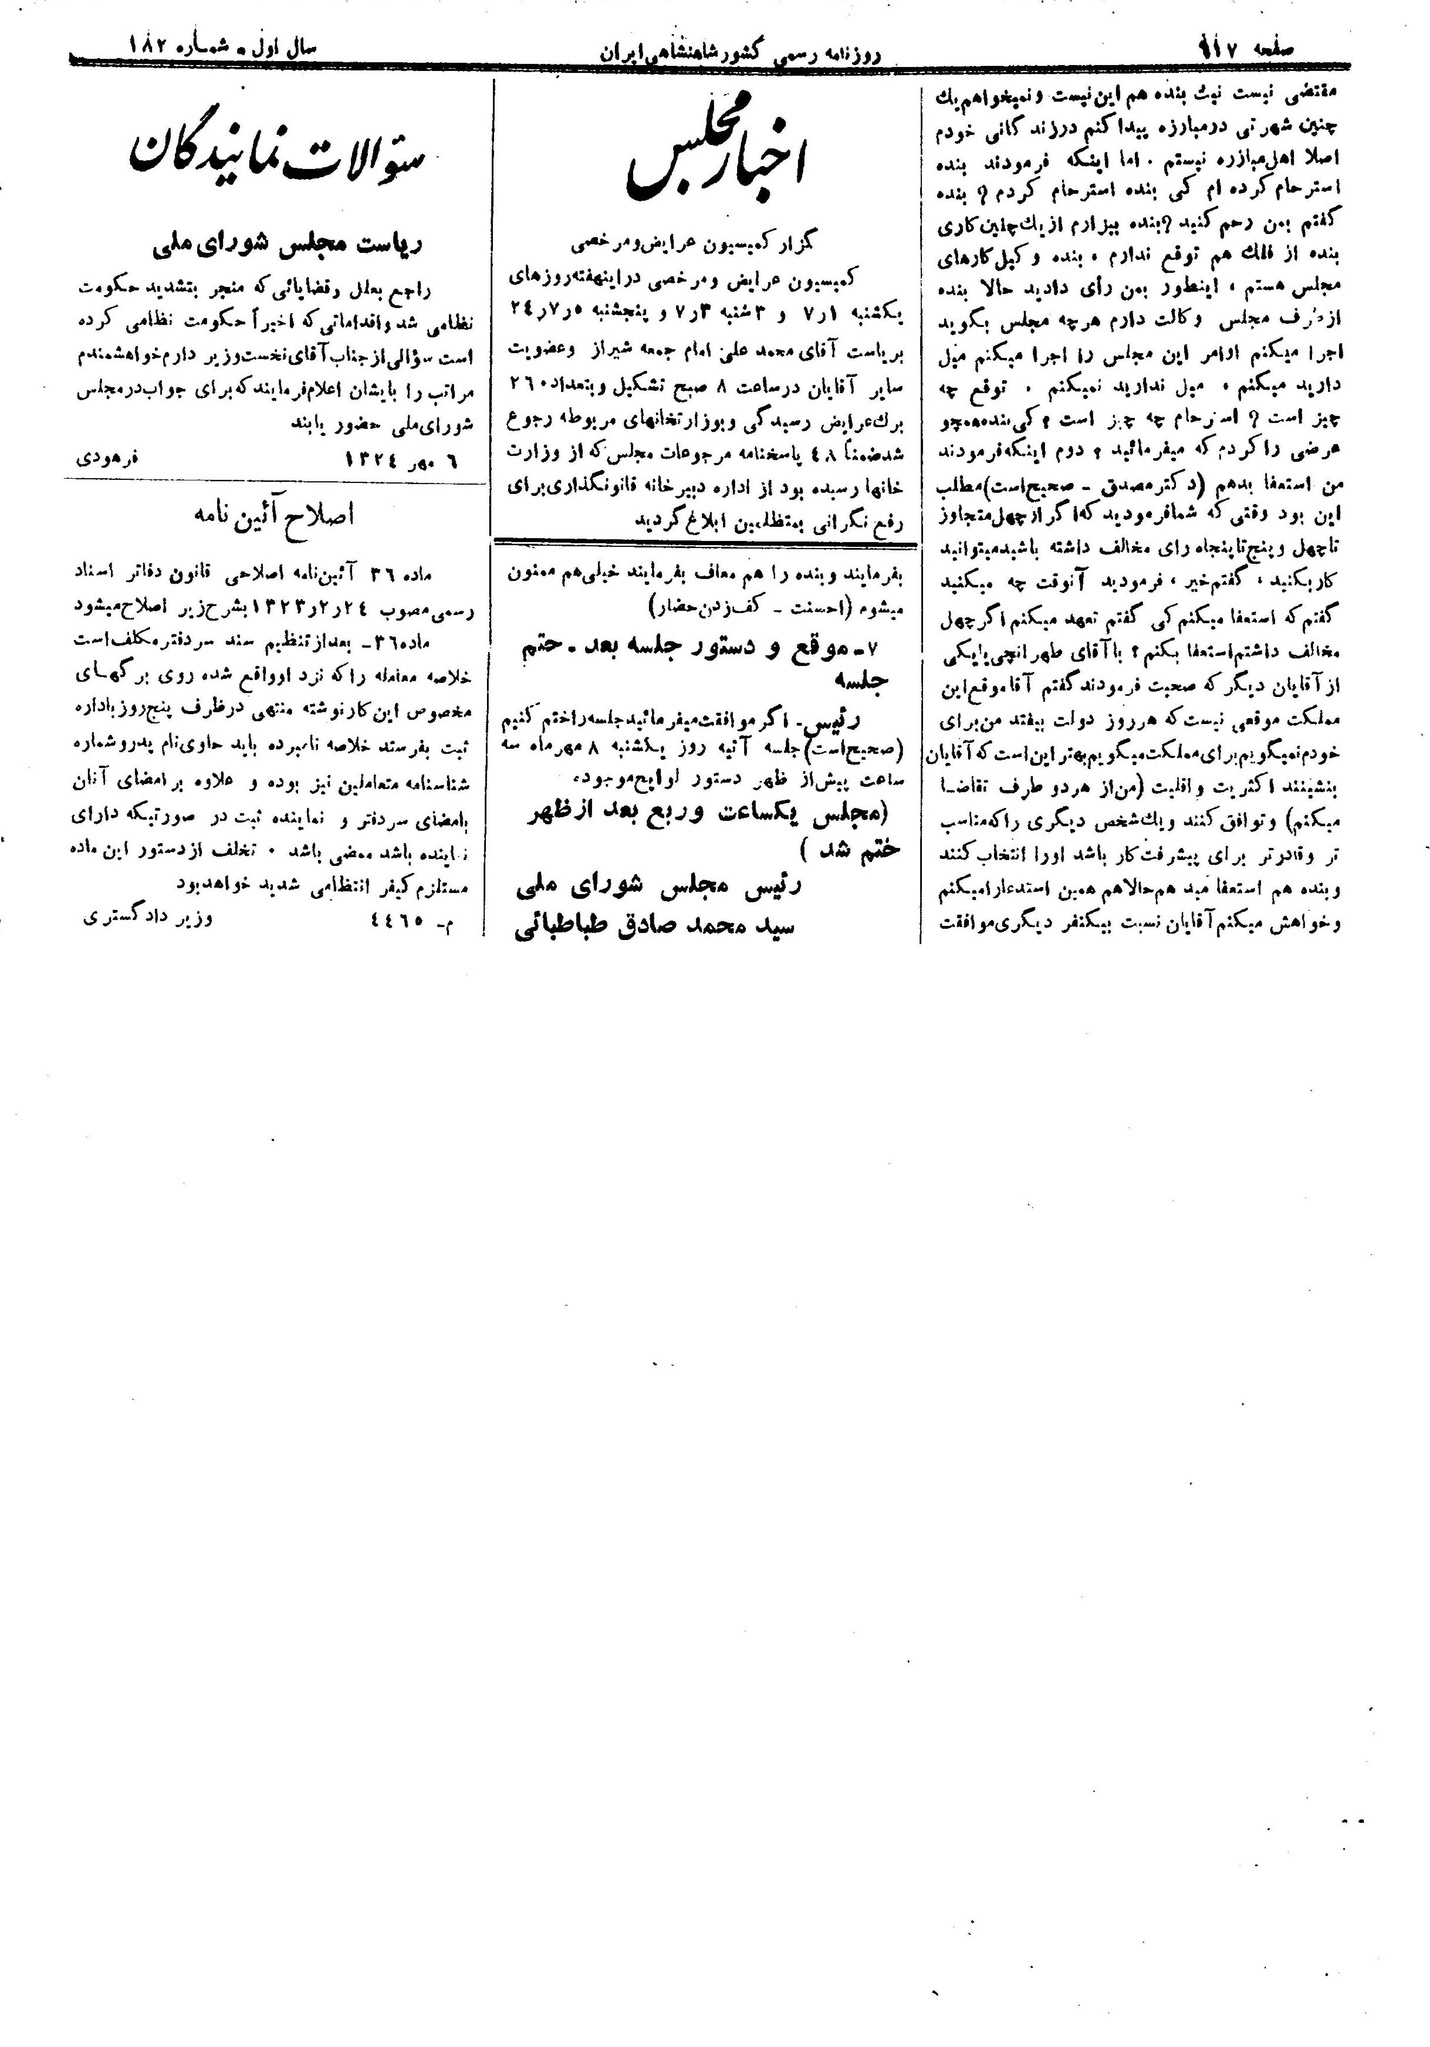 صفحه ۶۱۷
روزنامه رسمی کشور شاهنشاهی ایران
سال اول - شماره ۱۸۲
مقتضی نیست نیت بنده هم این نیست و نمیخواهم یك
چنین شهرتی در مبارزه پیدا کنم در زندگانی خودم
اصلا اهل مبازره نیستم . اما اینکه فرمودند بنده
استرحام کرده ام کی بنده استرحام کردم ؟ بنده
گفتم بمن رحم کنید ؟ بنده بیزارم از یك چنین کاری
بنده از فلك هم توقع ندارم ، بنده وکیل کارهای
مجلس هستم ، اینطور بمن رأی دادید حالا بنده
از طرف مجلس وکالت دارم هرچه مجلس بگوید
اجرا میکنم اوامر این مجلس را اجرا میکنم میل
دارید میکنم ، میل ندارید نمیکنم . توقع چه
چیز است ؟ استرحام چه چیز است ؟ کی بنده همچو
عرضی را کردم که میفرمائید ؟ دوم اینکه فرمودند
من استعفا بدهم (دکتر مصدق - صحیح است) مطلب
این بود وقتی که شما فرمودید که اگر از چهل متجاوز
تا چهل و پنج تا پنجاه رای مخالف داشته باشید میتوانید
کار بکنید ، گفتم خیر ، فرمودید آنوقت چه میکنید
گفتم که استعفا میکنم کی گفتم تعهد میکنم اگر چهل
مخالف داشتم استعفا بکنم ؟ با آقای طهرانچی با یکی
از آقایان دیگر که صحبت فرمودند گفتم آقا موقع این
مملکت موقعی نیست که هر روز دولت بیفتد من برای
خودم نمیگویم برای مملکت میگویم بهتر این است که آقایان
بنشینند اکثریت و اقلیت (من از هر دو طرف تقاضا
میکنم) و توافق کنند و یك شخص دیگری را که مناسب
تر و قادر تر برای پیشرفت کار باشد اورا انتخاب کنند
و بنده هم استعفا میدهم حالا هم همین استدعا را میکنم
و خواهش میکنم آقایان نسبت بیکنفر دیگری موافقت
اخبار مجلس
گزار کمیسیون عرایض و مرخصی
کمیسیون عرایض و مرخصی در اینهفته روزهای
یکشنبه ۱ر۷ و ۳شنبه ۳ر۷ و پنجشنبه ۵ر۷ر۲۴
بریاست آقای محمد علی امام جمعه شیراز وعضویت
سایر آقایان در ساعت ۸ صبح تشکیل و بتعداد ۲۶۰
برك عرایض رسیدگی و بوزارتخانهای مربوطه رجوع
شد ضمناً ۴۸ پاسخنامه مرجوعات مجلس که از وزارت
خانها رسیده بود از اداره دبیرخانه قانونگذاری برای
رفع نگرانی بمتظلمین ابلاغ گردید
بفرمایند و بنده را هم معاف بفرمایند خیلی هم ممنون
میشوم (احسنت - کف زدن حضار)
۷- موقع و دستور جلسه بعد - ختم
جلسه
رئیس - اگر موافقت میفرمائید جلسه را ختم کنیم
(صحیح است) جلسه آتیه روز یکشنبه ۸ مهر ماه سه
ساعت پیش از ظهر دستور لوایح موجوده
(مجلس یکساعت وربع بعد از ظهر
ختم شد )
رئیس مجلس شورای ملی
سید محمد صادق طباطبائی
سئوالات نمایندگان
ریاست مجلس شورای ملی
راجع بعلل و قضایائی که منجر بتشدید حکومت
نظامی شد و اقداماتی که اخیراً حکومت نظامی کرده
است سؤالی از جناب آقای نخست وزیر دارم خواهشمندم
مراتب را بایشان اعلام فرمایند که برای جواب در مجلس
شورای ملی حضور یابند
۶ مهر ۱۳۲۴ فرهودی
اصلاح آئین نامه
ماده ۳۶ آئین نامه اصلاحی قانون دفاتر اسناد
رسمی مصوب ۲۴ر۲ر۱۳۲۳ بشرح زیر اصلاح میشود
ماده ۳۶ - بعد از تنظیم سند سردفتر مکلف است
خلاصه معامله را که نزد او واقع شده روی برگهای
مخصوص این کار نوشته منتهی در ظرف پنج روز باداره
ثبت بفرستد خلاصه نامبرده باید حاوی نام پدر و شماره
شناسنامه متعاملین نیز بوده و علاوه بر امضای آنان
بامضای سردفتر و نماینده ثبت در صورتیکه دارای
نماینده باشد ممضی باشد . تخلف از دستور این ماده
مستلزم کیفر انتظامی شدید خواهد بود
م- ۴۴۶۵ وزیر دادگستری